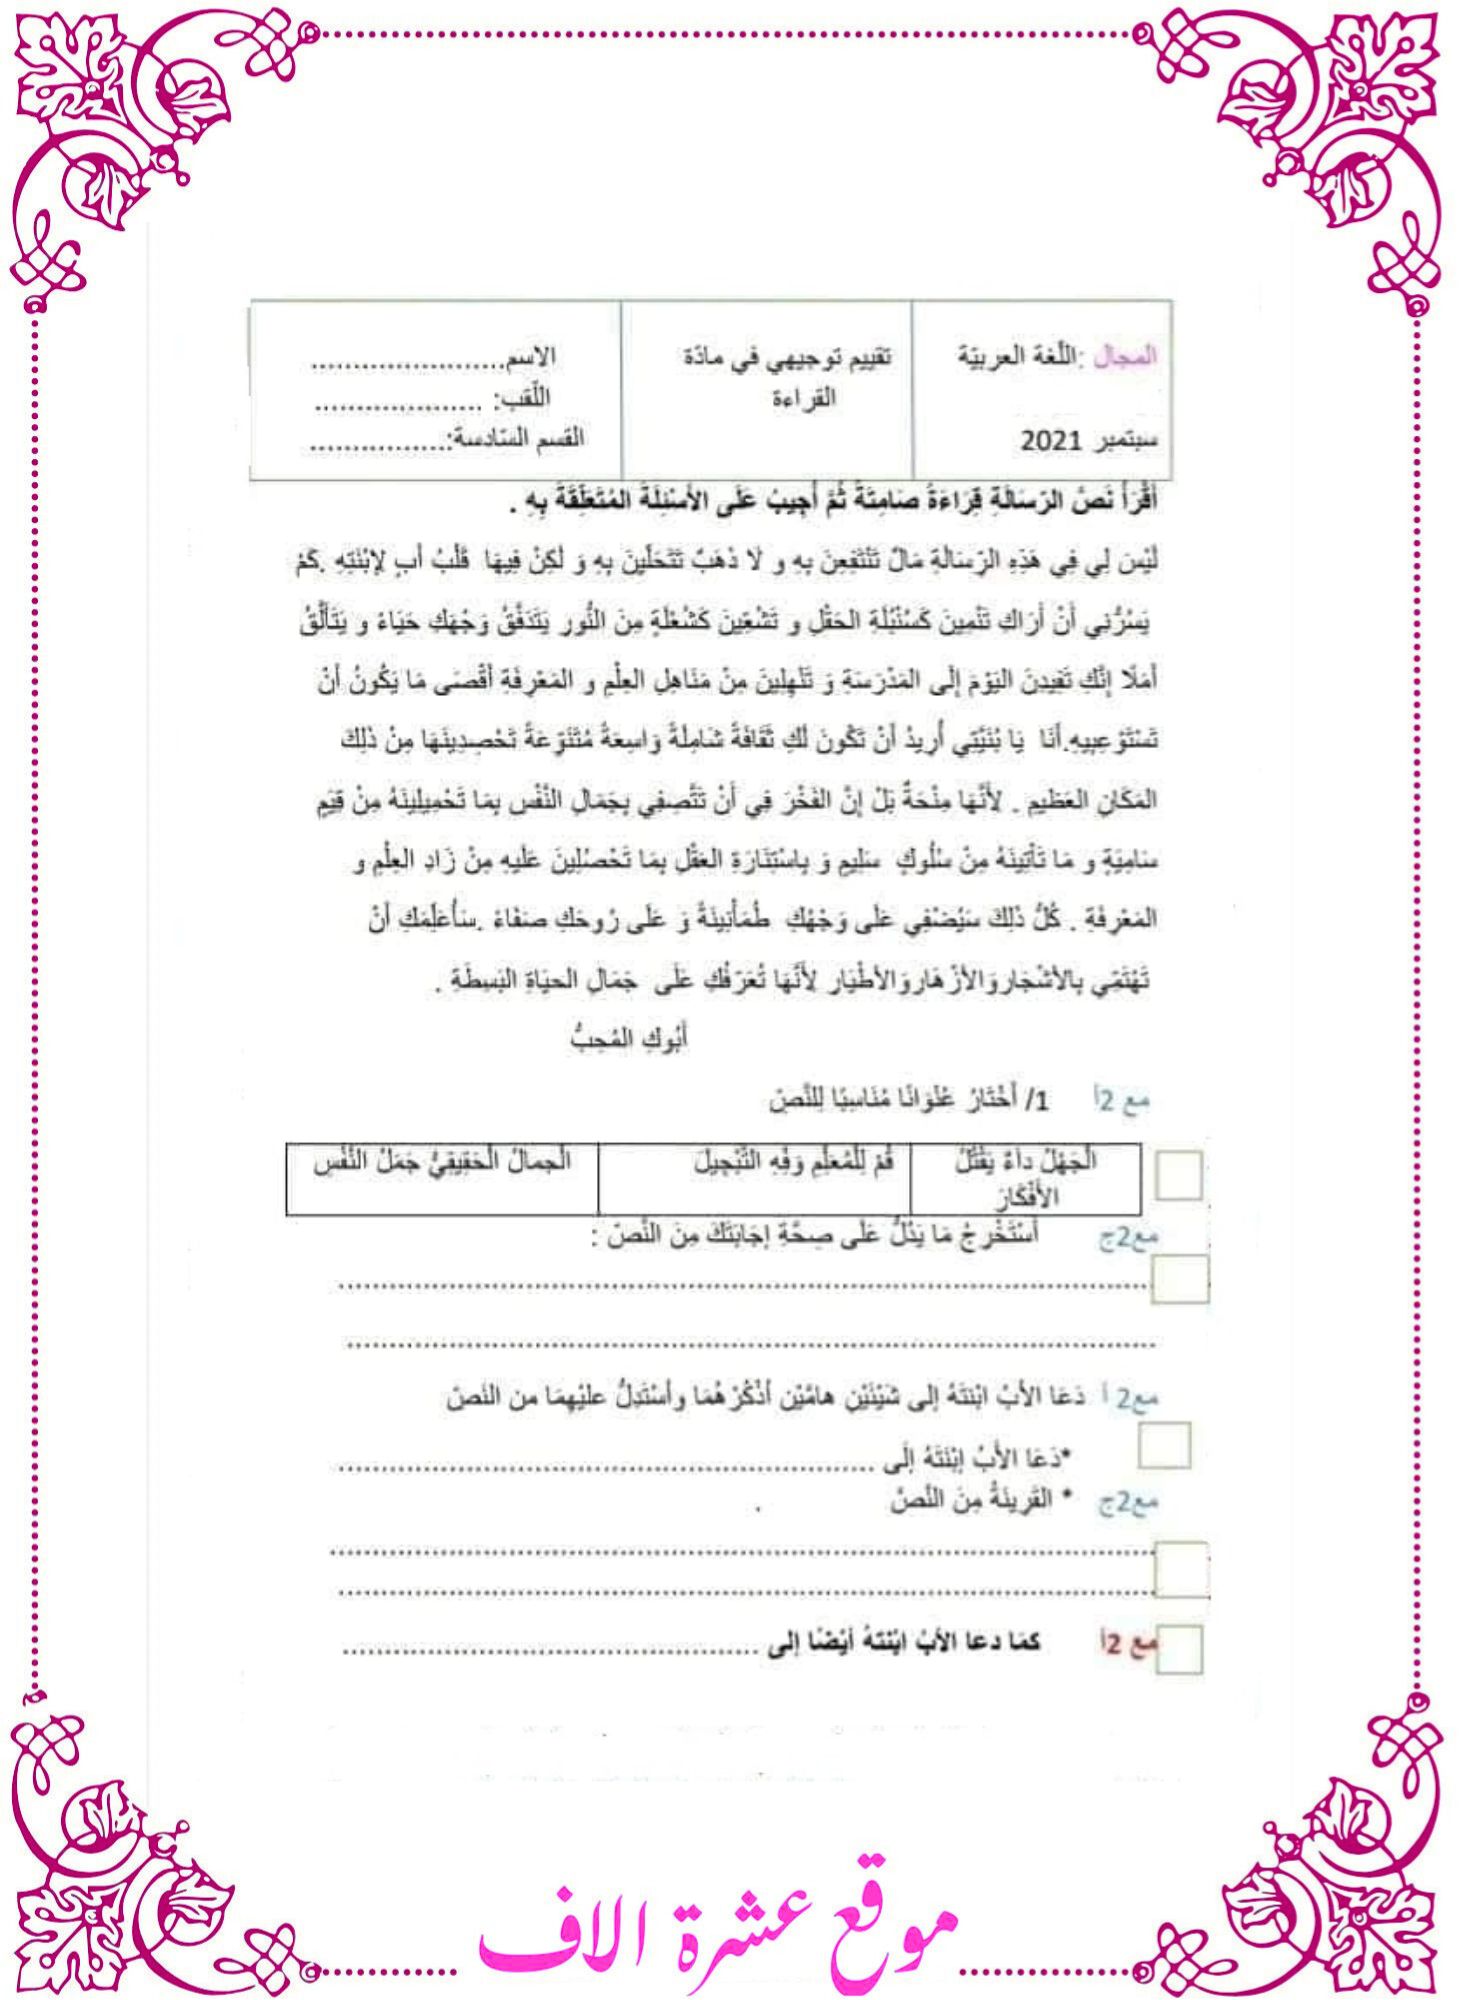 المجال :اللّغة العربيّة
سبتمبر 2021
تقييم توجيهي في مادّة
القراءة
الاسم.......................
اللّقب: ....................
القسم السّادسة:.................
أَقْرَأُ نَصَّ الرّسَالَةِ قِرَاءَةً صَامِتَةً ثُمَّ أُجِيبُ عَلَى الأَسْئِلَةَ المُتَعَلِّقَةَ بِهِ .
لَيْسَ لِي فِي هَذِهِ الرِّسَالَةِ مَالٌ تَنْتَفِعِنَ بِهِ و لَا ذَهَبٌ تَتَحَلَّينَ بِهِ وَ لَكِنْ فِيهَا قَلْبُ أبٍ لِإبْنَتِهِ .كَمْ
يَسُرُّنِي أَنْ أَرَاكِ تَنْمِينَ كَسُنْبُلَةِ الحَقْلِ و تَشُعِّينَ كَشُعْلَةٍ مِنَ النُّورِ يَتَدَفَّقُ وَجْهَكِ حَيَاءً و يَتَأَلَّقُ
أَمَلًا إِنَّكِ تَفِيدِنَ اليَوْمَ إِلَى المَدْرَسَةِ وَ تَنْهِلِينَ مِنْ مَنَاهِلِ العِلْمِ و المَعْرِفَةِ أَقْصَى مَا يَكُونُ أَنْ
تَسْتَوْعِبِيهِ.أَنَا يَا بُنَيَّتِي أُرِيدُ أَنْ تَكُونَ لَكِ ثَقَافَةً شَامِلَةً وَاسِعَةً مُتَنَوِّعَةً تَحْصِدِينَهَا مِنْ ذَلِكَ
المَكَانِ العَظِيمِ . لِأَنَّهَا مِنْحَةٌ بَلْ إِنَّ الفَخْرَ فِي أَنْ تَتَّصِفِي بِجَمَالِ النَّفْسِ بِمَا تَحْمِيلِينَهُ مِنْ قِيَمٍ
سَامِيَةٍ و مَا تَأْتِينَهُ مِنْ سُلُوكٍ سَلِيمٍ وَ بِاسْتِنَارَةِ العَقْلِ بِمَا تَحْصُلِينَ عَلَيهِ مِنْ زَادِ العِلْمِ و
المَعْرِفَةِ . كُلُّ ذَلِكَ سَيُضْفِي عَلى وَجْهُكِ طُمَأْنِينَةً وَ عَلَى رُوحَكِ صَفَاءً .سَأُعَلِمَكِ أَنْ
تَهْتَمِّي بِالأشْجَارِوَالأزْهَارِوَالأطْيَارِ لِأَنَّهَا تُعَرِّفُكِ عَلَى جَمَالِ الحيَاةِ البَسِطَةِ .
أَبُوكِ المُحِبُّ
مع 2أ 1/ أَخْتَارُ عُنْوَانًا مُنَاسِبًا لِلنَّصِّ
الْجَهْلُ دَاءٌ يَقْتُلُ
الأَفْكَارَ
قُمْ لِلْمُعَلِّمِ وَفِّهِ التَّبْجِيلَ
الْجمالُ الْحَقِيقِيُّ جَمَلُ النَّفْسِ
مع2ج أَسْتَخْرِجُ مَا يَدُلُّ عَلَى صِحَّةِ إِجَابَتَكَ مِنَ النَّصِّ :
................................................................
................................................................
مع2 أ دَعَا الأَبُ ابْنَتَهُ إِلى شَيْئَيْنِ هامَّيْنِ أَذْكُرْهُمَا وأَسْتَدِلُّ عليْهِمَا من النّصِّ
*دَعَا الأَبُ إبْنَتَهُ إلَى ..........................................
مع2ج * القَرِينَةُ مِنَ النَّصِّ
................................................................
................................................................
مع 2أ كمَا دعا الأبُ ابْنتهُ أيْضًا إلى .................................
موقع عشرة الاف